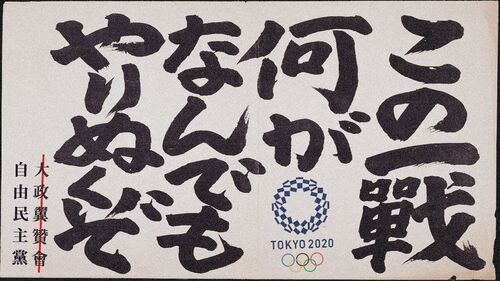 この一戰
何が
なんでも
やりぬくぞ
TOKYO 2020
大政翼贊會
自由民主黨